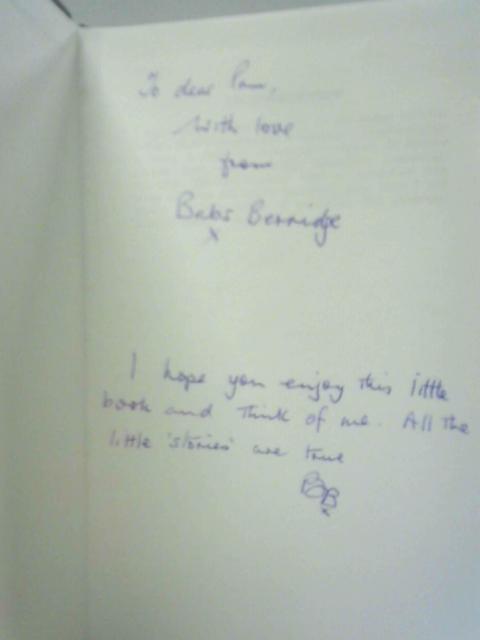 To dear Pam,
with love
from
Babs Berridge
x
I hope you enjoy this little
book and think of me. All the
little 'stories' are true
BB
x